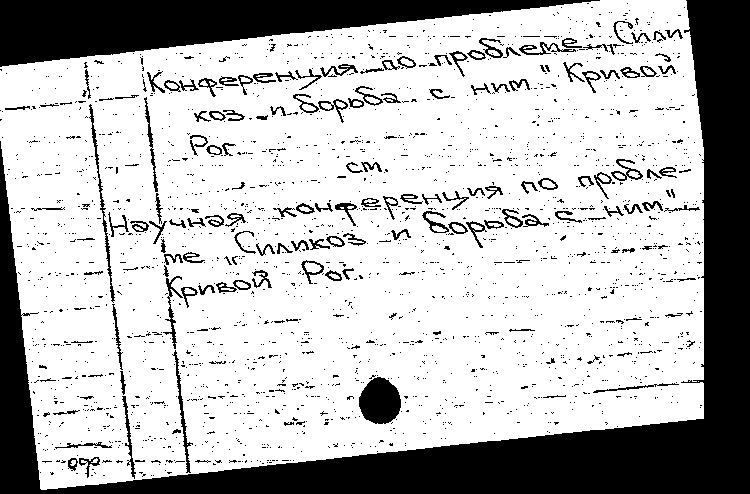 Конференция по проблеме „Сили-
коз и борьба с ним" Кривой
Рог.
см.
Научная конференция по пробле-
ме „Силикоз и борьба с ним".
Кривой Рог.